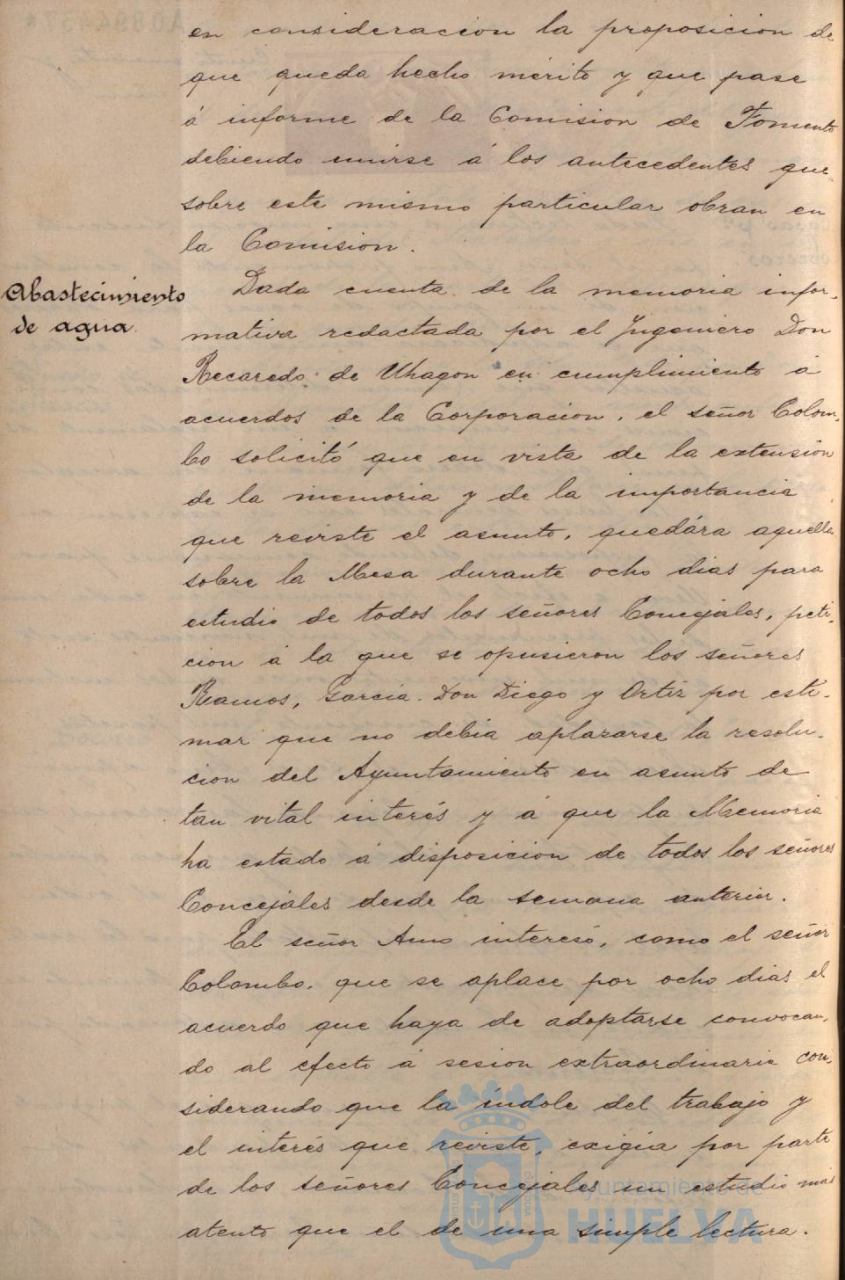 en consideracion la proposicion de
que queda hecho mérito y que pase
á informe de la Comision de Fomento
debiendo unirse á los antecedentes que
sobre este mismo particular obran en
la Comision.
Abastecimiento
de agua.
Dada cuenta de la memoria infor-
mativa redactada por el Ingeniero Don
Recaredo de Uhagon en cumplimiento á
acuerdos de la Corporacion, el señor Colom-
bo solicitó que en vista de la extension
de la memoria y de la importancia
que reviste el asunto, quedára aquella
sobre la Mesa durante ocho dias para
estudio de todos los señores Concejales, peti-
cion á la que se opusieron los señores
Ramos, Garcia Don Diego y Ortiz por esti-
mar que no debia aplazarse la resolu-
cion del Ayuntamiento en asunto de
tan vital interés y á que la Memoria
ha estado á disposicion de todos los señores
Concejales desde la semana anterior.
El señor Amo interesó, como el señor
Colombo, que se aplace por ocho dias el
acuerdo que haya de adoptarse convocan-
do al efecto á sesion extraordinaria con-
siderando que la índole del trabajo y
el interés que reviste, exigia por parte
de los señores Concejales un estudio más
atento que el de una simple lectura.
Ayuntamiento de
HUELVA